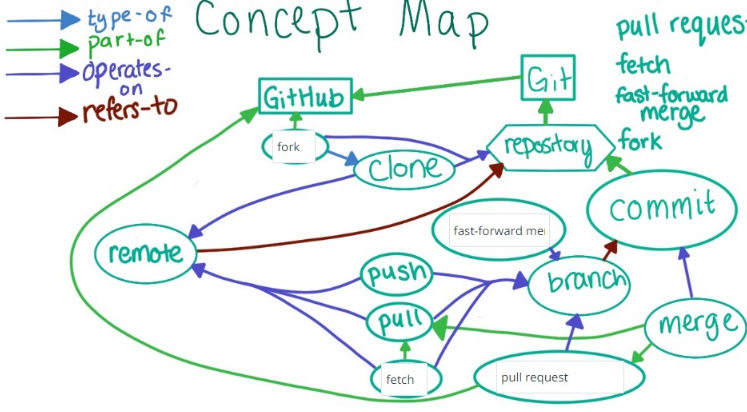 Concept Map
type-of
part-of
operates-
on
refers-to
pull reques
fetch
fast-forward
merge
fork
GitHub
Git
fork
clone
repository
commit
remote
fast-forward me
push
branch
pull
merge
fetch
pull request